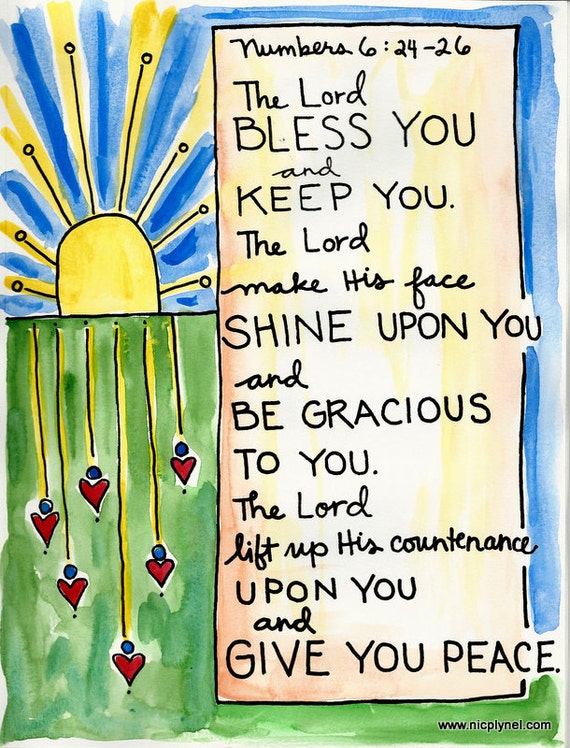 Numbers 6:24-26
The Lord
BLESS YOU
and
KEEP YOU.
The Lord
make His face
SHINE UPON YOU
and
BE GRACIOUS
TO YOU.
The Lord
lift up His countenance
UPON YOU
and
GIVE YOU PEACE.
www.nicplynel.com